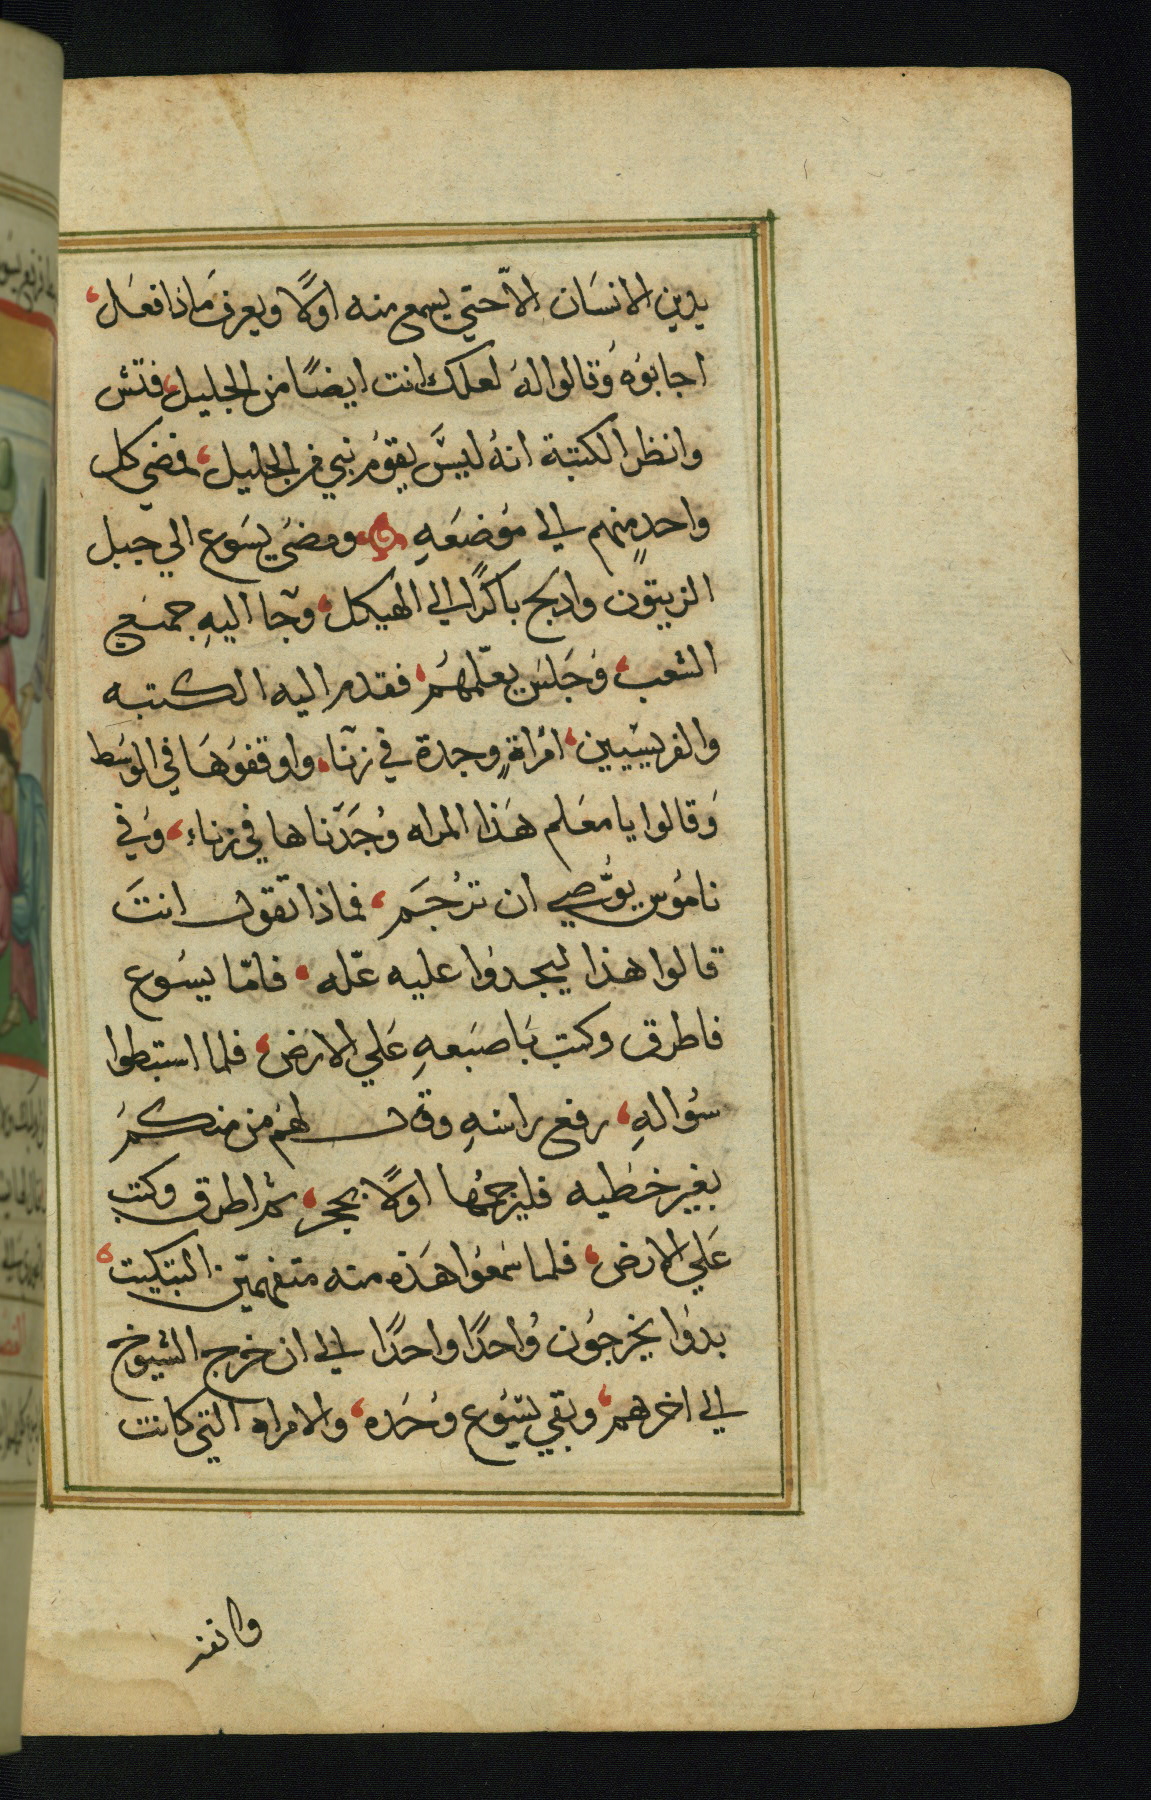 يدين الانسَان الاّ حتي يسمع منه اولًا ويعرف مَاذا فعَل،
اجابوُه وُقالوا لهُ لعلك انت ايضًا من الجليل، فتش
وانظر الكتبة انهُ ليسَّ يقوُم نبي من الجليل، فمضي كل
واحدٍ منهم الي مَوُضعَهِ ومضي يسَوع الي جبل
الزيتوُن وادلج باكرًا الي الهيكل، وجَآ اليهِ جميع
الشعب، وَجَلسَ يعلّمهُم، فقدم اليه الكتبه
والفريسيين، امُراةٍ وجدة في زنَا، واوقفوُهَا في الوسَط
وَقالوا يا معَلم هَذا المراه وُجَدَناها في زناء، وَفي
نامُوس يوُصي ان ترُجَم، فماذا تقول انتَ
قالوا هذا ليجدوُا عليه عّله، فامّا يسُوع
فاطرق وكتب بَاصبَعهِ عَلي الارَض، فلما استبطوا
سُوالهِ، رفع راسَهِ وقال لهُم من منكمُ
بغير خطيه فليرجمُها اولًا بحجر، ثم اطرق وكتب
عَلي الارض، فلما سَمعُوا هَذه منه متفهميّن التبكيت،
بدوُا يخرجوُن وُاحدًا واحدًا الي ان خرج الشيوخ
الي اخرهم، وبقي يسُوع وُحَده، والامراه التي كانت